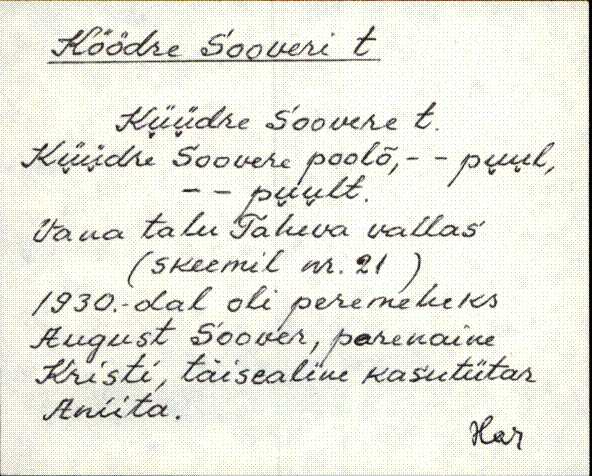 Köödre Sooveri t
Kü̬ü̬dre Soovere t.
Kü̬ü̬dre Soovere poolõ, - - pu̬u̬l,
- - pu̬u̬lt.
Vana talu Taheva vallas
(skeemil nr. 21)
1930.-dal oli peremeheks
August Soover, perenaine
Kristi, täisealine kasutütar
Aniita.
Har